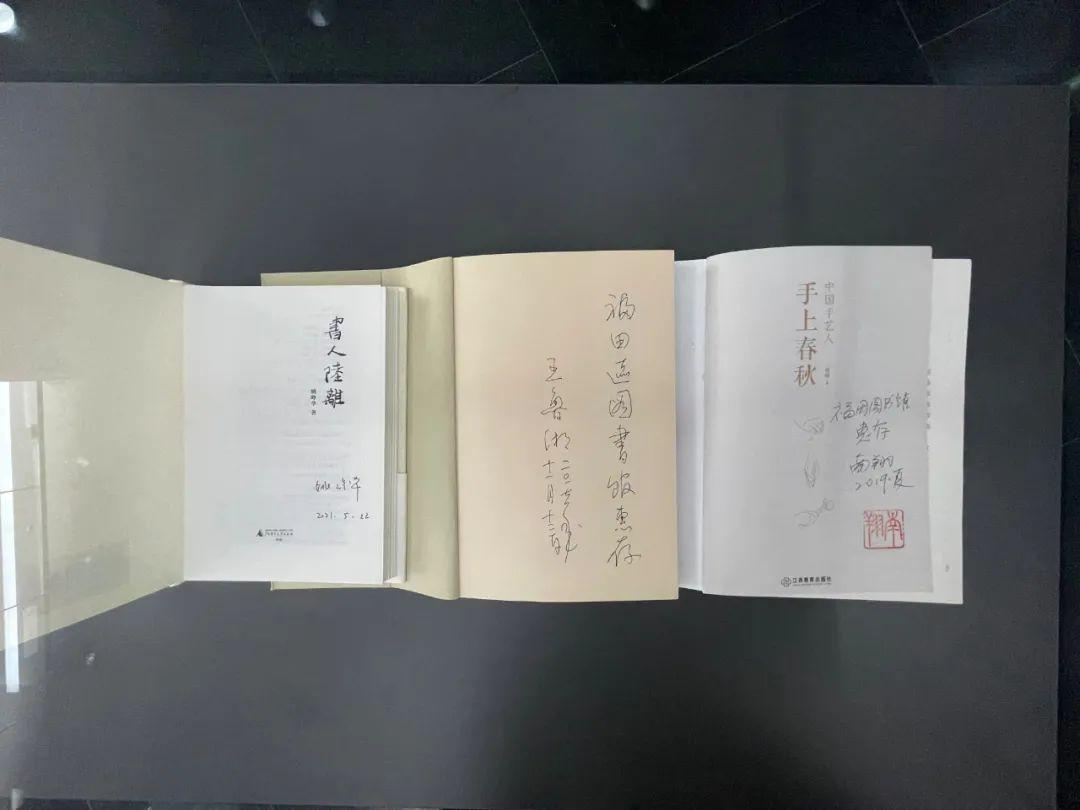 書人陸離
姚峥华 著
姚峥华
2021.5.22
福田区图書馆惠存
王鲁湘
十一月十二日
中国手艺人
手上春秋
南翔 著
福田图书馆
惠存
南翔
2019.夏
南翔
江西教育出版社